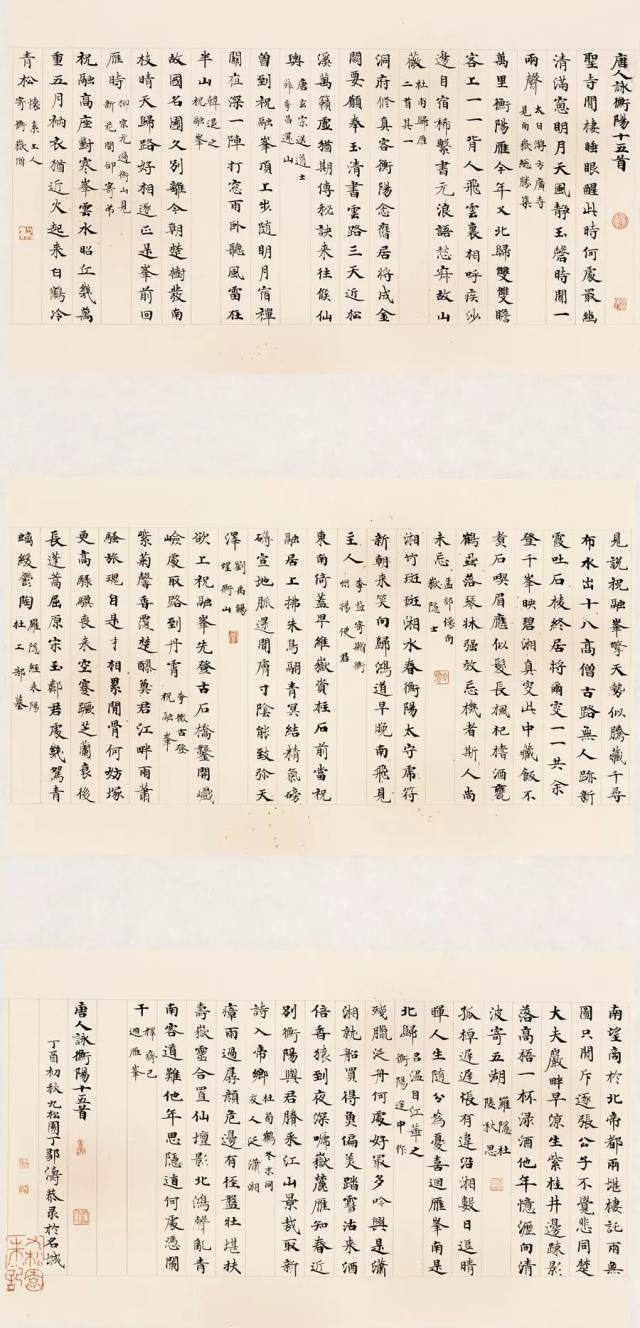 唐人詠衡陽十五首
聖寺閒棲睡眼醒此時何處最幽
清滿窓明月天風静玉磬時聞一
兩聲 太白游方廣寺
見南嶽總勝集
萬里衡陽雁今年又北歸雙雙瞻
客上一一背人飛雲裏相呼疾沙
邊自宿稀繫書元浪語愁寂故山
薇 杜甫歸雁
二首其一
洞府修真客衡陽念舊居將成金
闕要願奉玉清書雲路三天近松
溪萬籟虛猶期傳秘訣來往候仙
輿 唐玄宗送道士
薛季昌還山
曾到祝融峯頂上步隨明月宿禪
關夜深一陣打窓雨卧聽風雷在
半山 韓退之
祝融峯
故國名園久别離今朝楚樹發南
枝晴天歸路好相逐正是峯前回
雁時 柳宗元過衡山見
新花開却寄弟
祝融高座對寒峯雲水昭丘幾萬
重五月衲衣猶近火起來白鶴冷
青松 懷素上人
寄衡嶽僧
見說祝融峯擎天勢似騰藏千尋
布水出十八高僧古路無人跡新
霞吐石稜終居將爾叟一一共余
登千峯映碧湘真叟此中藏飯不
煮石喫眉應似髪長楓杞楮酒甕
鶴虱落琴牀强效忘機者斯人尚
未忘 懷南
嶽隱士
湘竹斑斑湘水春衡陽太守虎符
新朝來笑向歸鴻道早晚南飛見
主人 李益寄贈衡
州楊使君
東南倚蓋卑維嶽資柱石前當祝
融居上拂朱鳥翮青冥結精氣磅
礴宣地脈還聞膚寸陰能致弥天
澤 劉禹錫
望衡山
欲上祝融峯先登古石橋鑿開巇
嶮處取路到丹霄 李徵古登
祝融峯
紫菊馨香覆楚醪奠君江畔雨蕭
騷旅魂自是才相累閒骨何妨塚
更高騄驥喪來空蹇蹶芝蘭衰後
長蓬蒿屈原宋玉鄰君處幾駕青
螭緩鬱陶 羅隱經耒陽
杜工部墓
南望商於北帝都兩堪棲託兩無
圖只聞斥逐張公子不覺悲同楚
大夫巖畔早涼生紫桂井邊疎影
落高梧一杯渌酒他年憶瀝向清
波寄五湖 羅隱杜
陵秋思
孤棹遲遲悵有違沿湘數日逗晴
暉人生隨分為憂喜迴雁峯南是
北歸 呂温自江華之
衡陽途中作
殘臘泛舟何處好最多吟興是瀟
湘就船買得魚偏美踏雪沽來酒
倍香猿到夜深啼嶽麓雁知春近
别衡陽與君剩采江山景裁取新
詩入帝鄉 杜荀鶴冬末同
友人泛瀟湘
瘴雨過孱顏危邊有徑盤壮堪扶
壽嶽靈合置仙壇影北鴻聲亂青
南客道難他年思隱遁何處憑闌
干 釋齊己
迴雁峯
唐人詠衡陽十五首
丁酉初秋九松園丁鄒濤恭录於名城